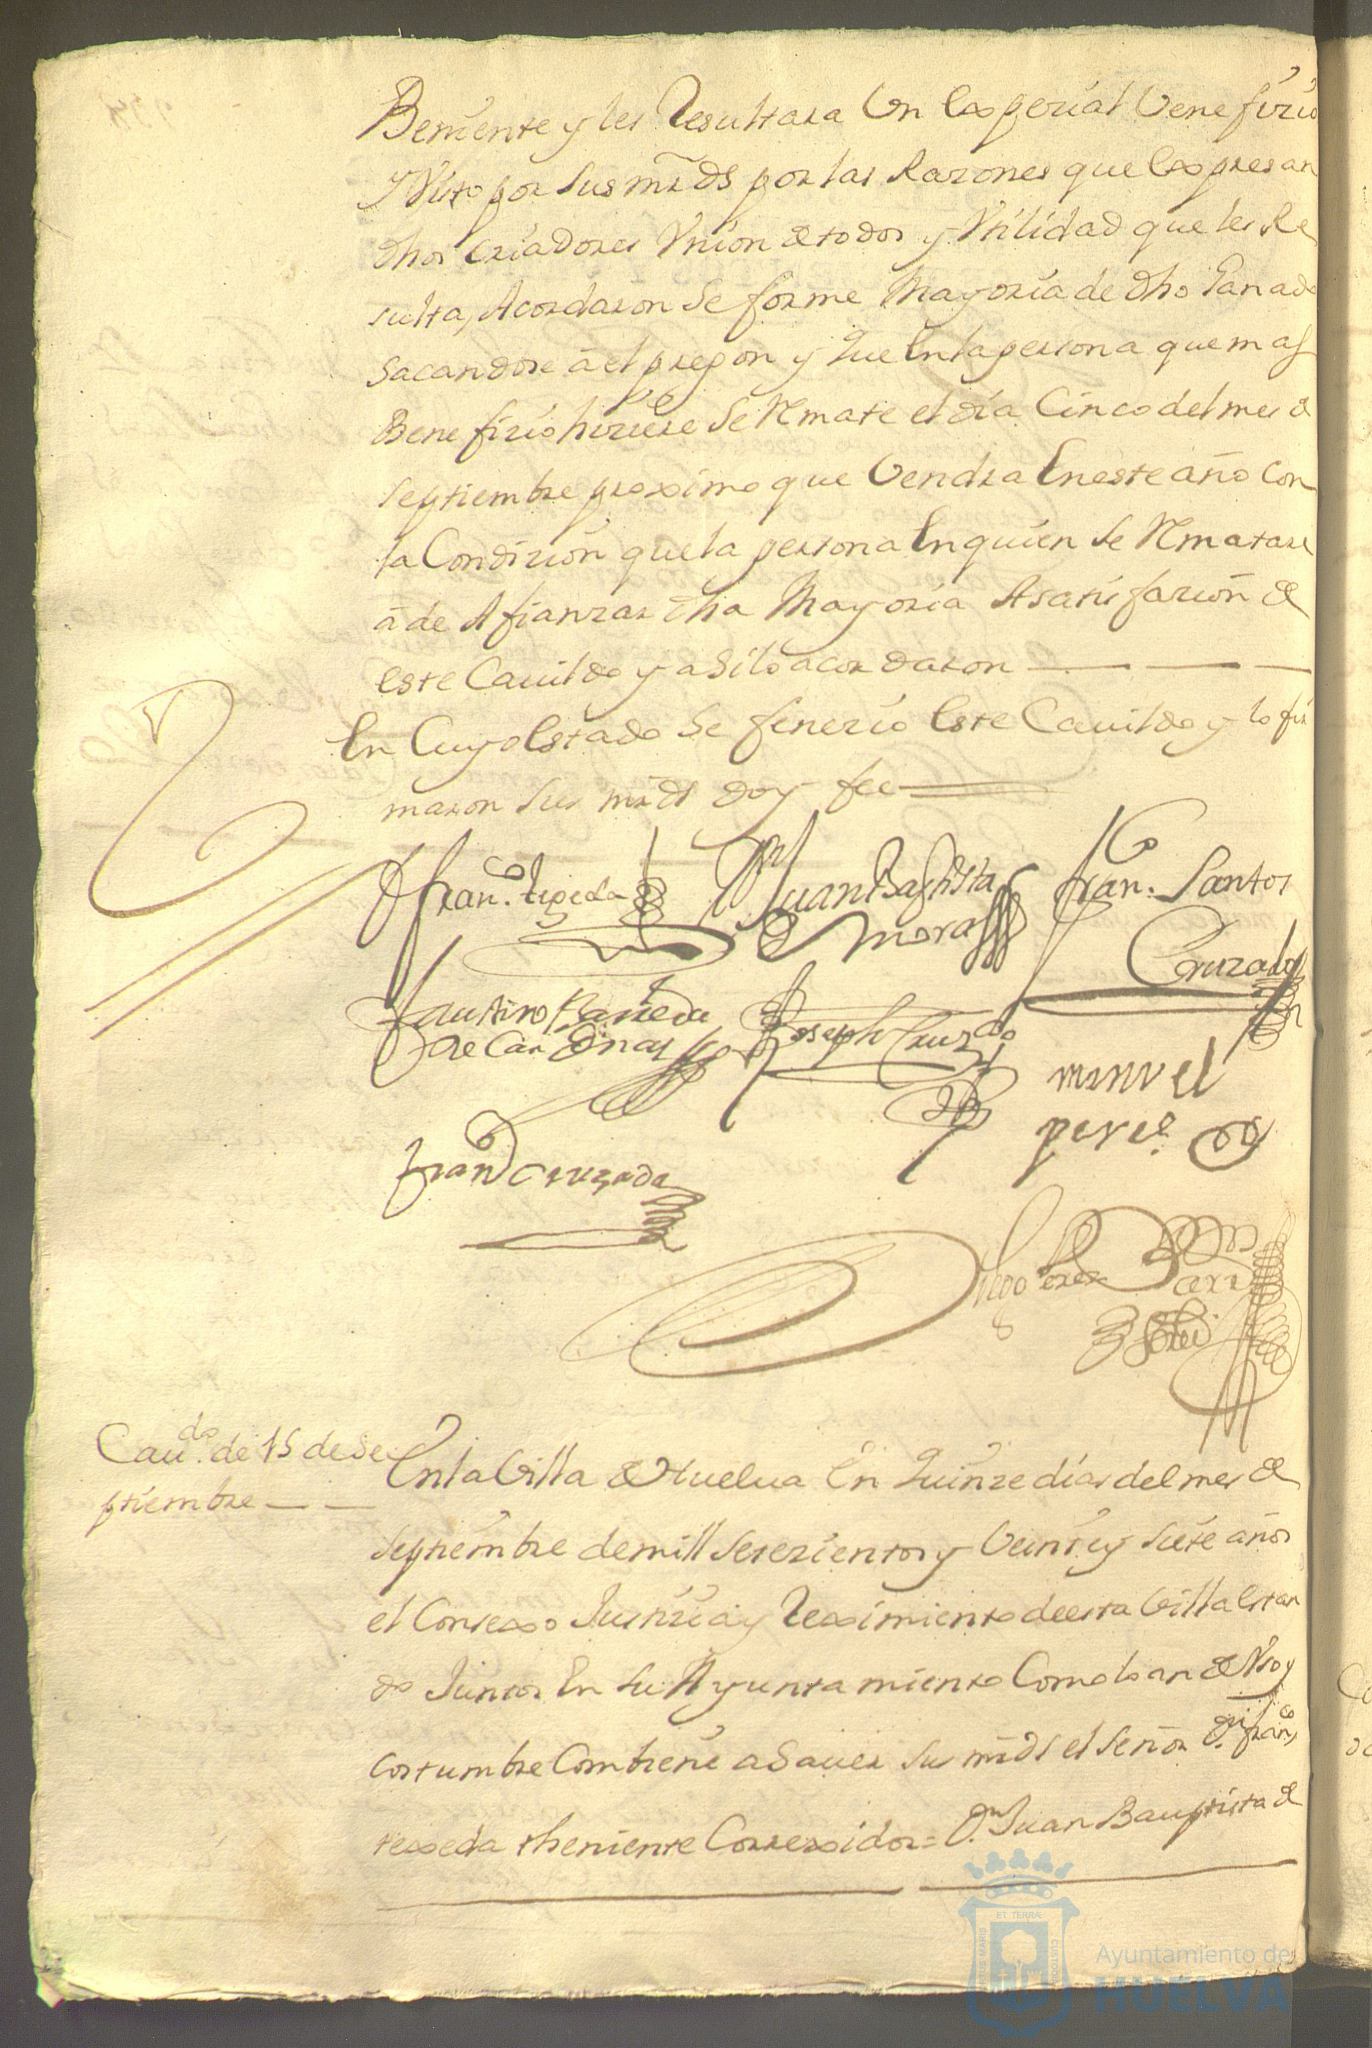 Beniente y les Resultara Un Expecial Venefizio
y Visto por sus mrds por las Razones que Expresan
dhos criadores Union de todos y Utilidad que les Re
sulta, Acordaron se forme Mayoria de dho Ganado
sacandose a el pregon y que En la persona que mas
Benefizio hiziere se Rmate el dia Cinco del mes de
septiembre proximo que Vendra En este año con
la Condizion que la persona En quien se Rmatare
á de Afianzar dha Mayoria A satisfazion de
este Cauildo y asi lo acordaron
En Cuyo Estado se fenezio Este Cauildo y lo fir
maron sus mrds doy fee
Franco. tegeda
Dn Juan Baptista
de Mora
Franco. Santos
Cruzado
Faustino Bañeda
de Cardenas
Joseph Cruzdo
manuel
perez
Franco Cruzado
Diego Perez
Caudo. de 15 de Se
ptiembre
En la Villa de Huelua En quinze dias del mes de
septiembre de mill setezientos y Veinte y siete años
el Consexo Justizia y Reximiento de esta Villa Estan
do Juntos En su Ayuntamiento Como lo an de Uso y
costumbre Combiene a Sauer sus mrds el señor Dn. Franco
texeda theniente Correxidor = Dn. Juan Bauptista de
ET TERRÆ
Ayuntamiento de
HUELVA